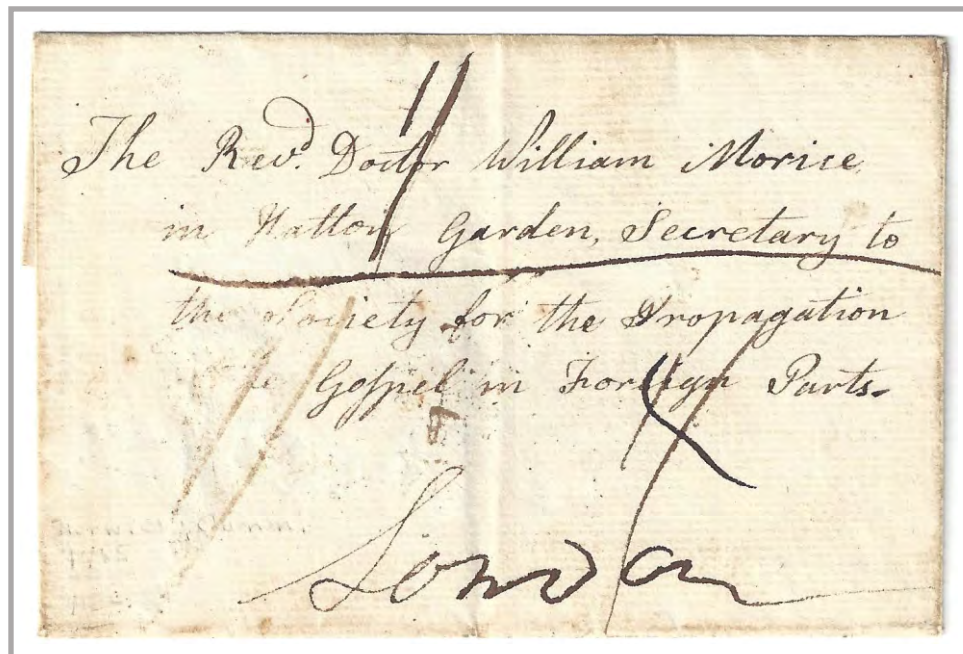 The Rev.d Doctor William Morice
in Hatton Garden, Secretary to
the Society for the Propagation
Gospel in Foreign Parts.
London